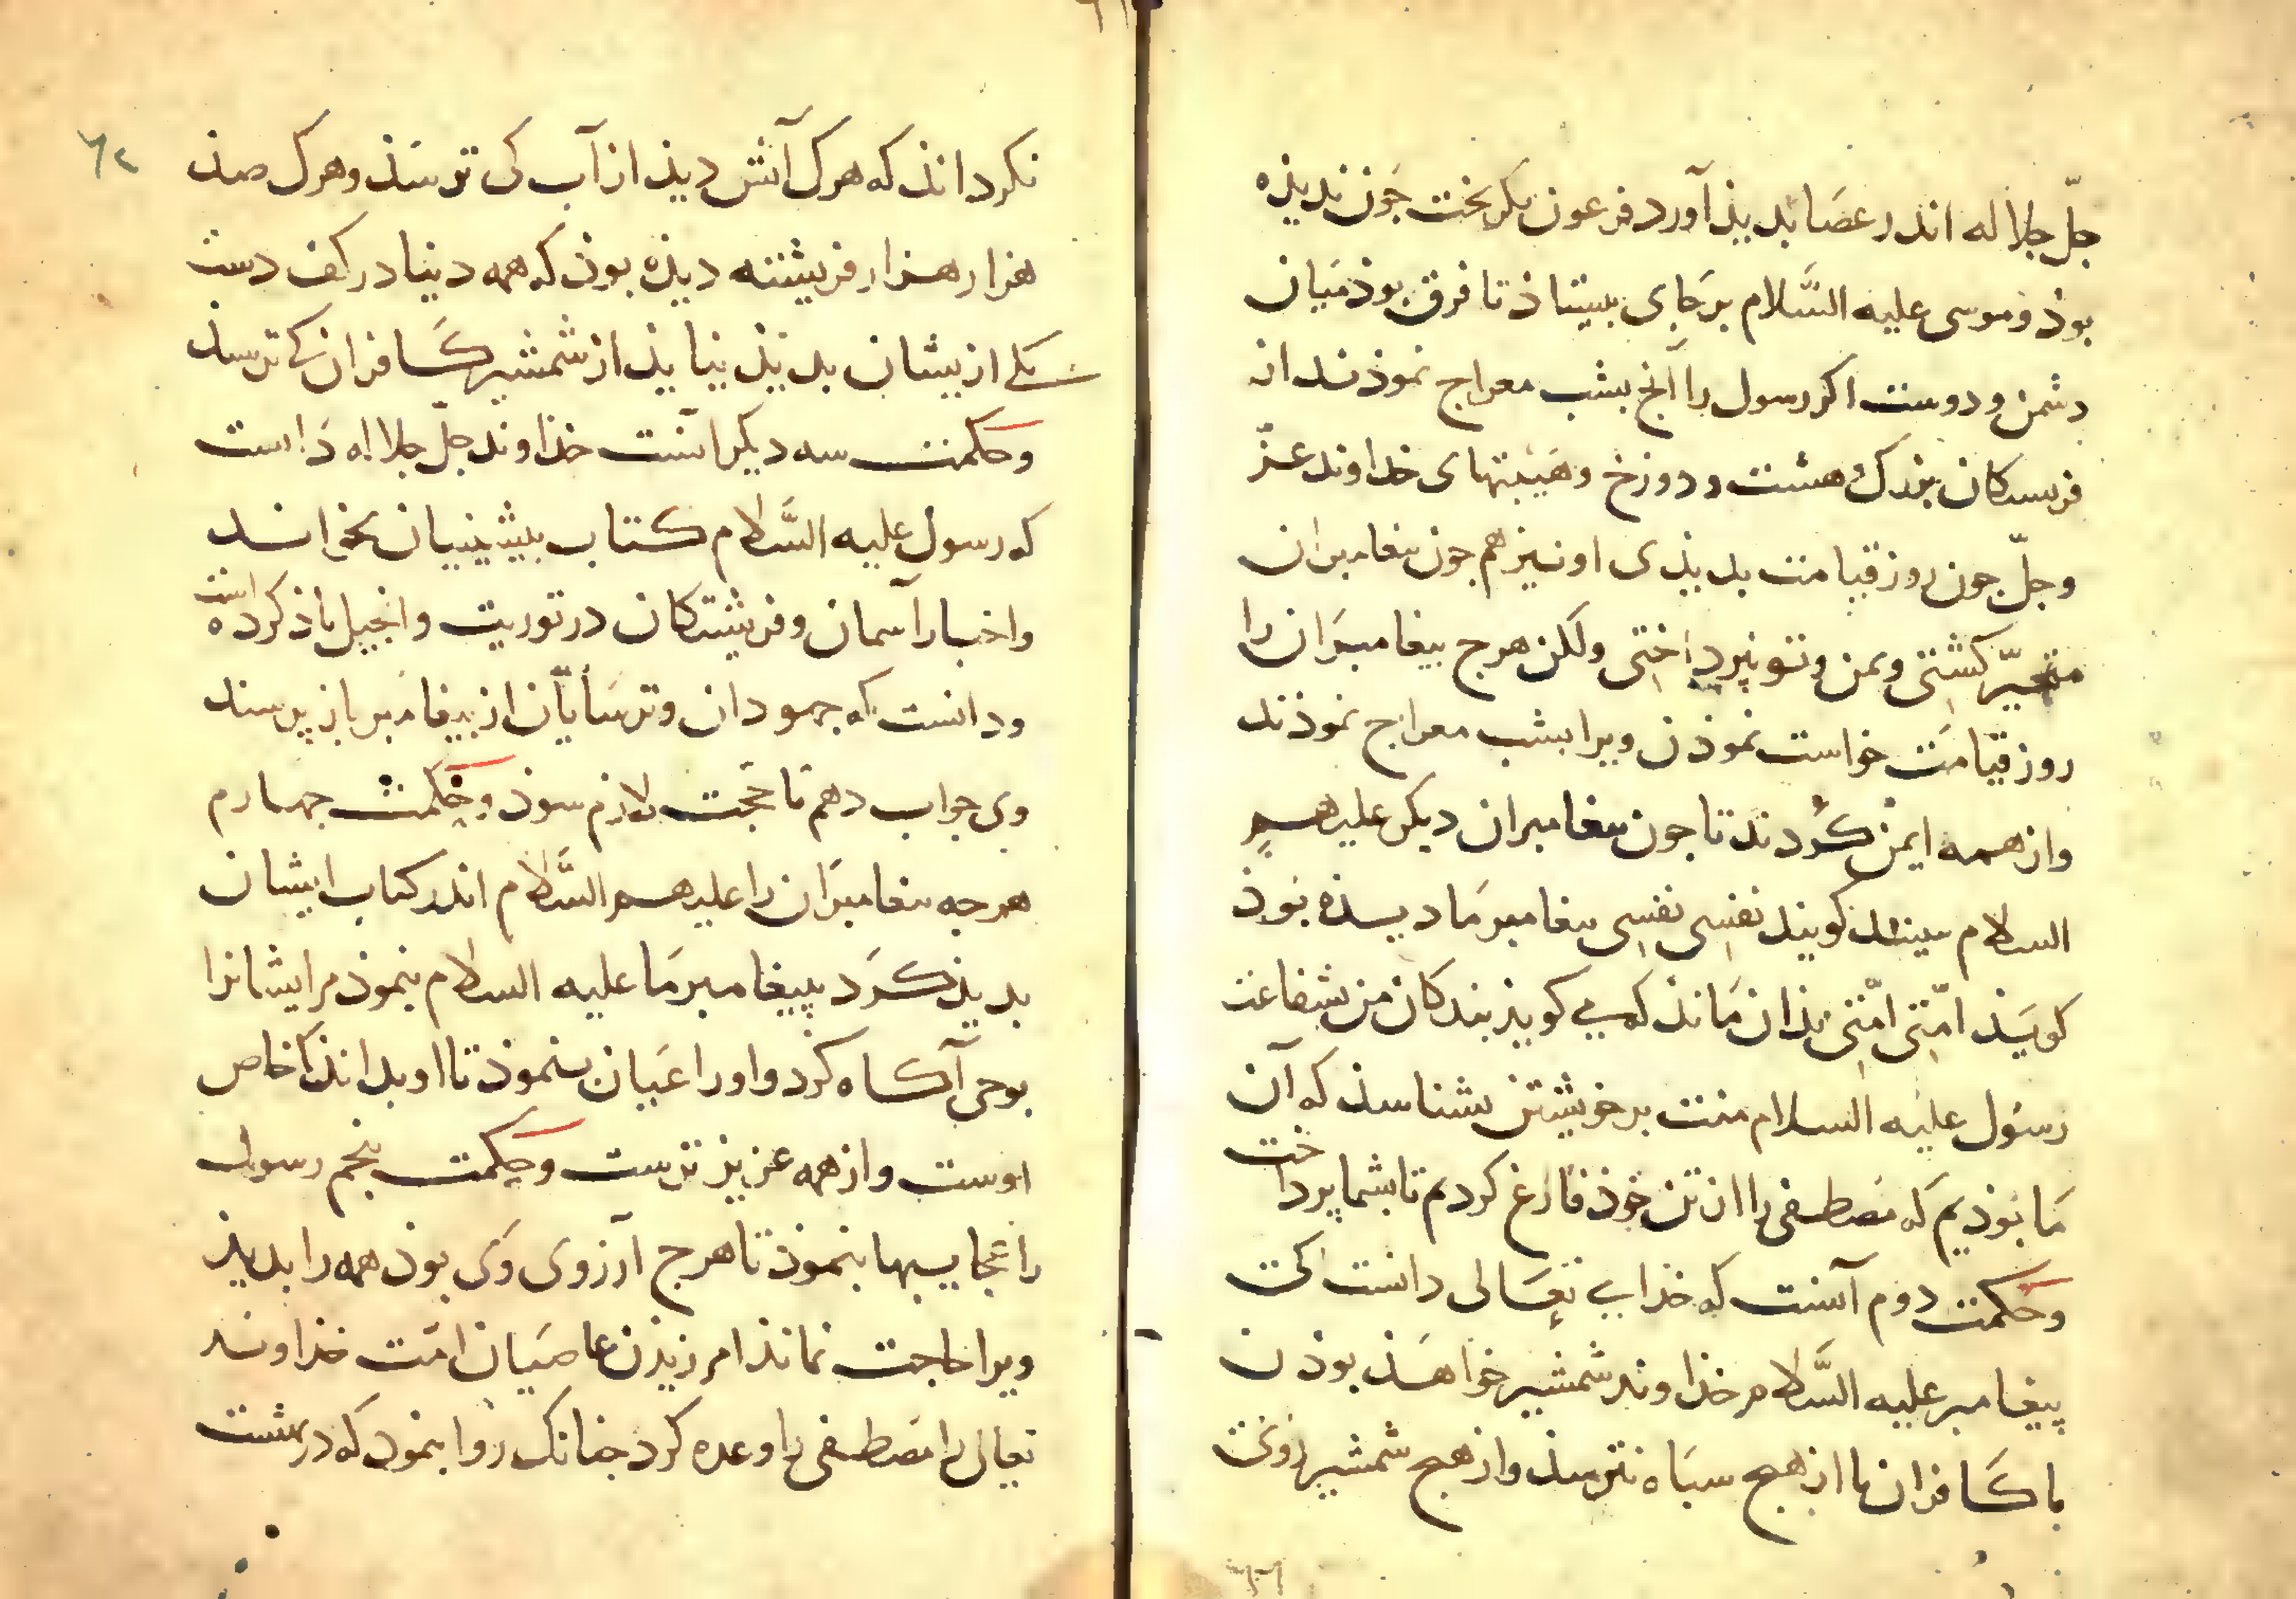 جلّ جلاله اندر عصا بدیذ آورد فرعون بکریخت جون ندیذه
بوذ و موسی علیه السّلام بر جای بیستاذ تا فرق بوذ میان
دشمن و دوست اکر رسول را آنج بشب معراج نموذند از
فرستکان بزرک و هشت و دوزخ و هیبتهای خداوند عزّ
و جلّ جون روز قیامت بدیذی او نیز هم جون بیغامبران
متحیّر کشتی و بمن و تو نپرداختی ولکن هرج بیغامبران را
روز قیامت خواست نموذن ویرا بشب معراج نموذند
و از همه ایمن کردند تا جون بیغامبران دیکر علیهم
السلام ببینند کویند نفسی نفسی بیغامبر ما دیذه بوذ
کویذ امّتی امّتی بذان ماند که می کویذ بندکان من بشفاعت
رسول علیه السلام منت بر خویشتن بشناسذ که آن
ما بوذیم که مصطفی را از تن خوذ فارغ کردیم تا بشما پرداخت
و حکمت دوم آنست که خدای تعالی دانست کی
پیغامبر علیه السّلام خذاوند شمشیر خواهذ بوذن
با کافران تا از هیج سباه نترسذ و از هیج شمشیر روی
نکرداند که هرک آتش دیذ از آب کی ترسذ و هرک صذ
هزار هزار فریشته دیذه بوذ که همه دنیا در کف دست
یکی از بیشان بدیذ نیایذ از شمشیر کافران کی ترسذ
و حکمت سه دیکر آنست خذاوند جلّ جلاله دانست
که رسول علیه السّلام کتاب بیشینیان نخواند
و اخبار آسمان و فریشتکان در توریت و انجیل یاذ کرده است
و دانست که جهودان و ترسایان از بیغامبر باز پرسند
وی جواب دهم تا حجت لازم سوذ و حکمت جهارم
هرجه بیغامبران را علیهم السّلام اندر کتاب ایشان
بدیذ کرد پیغامبر ما علیه السلام بنموذ مر ایشانرا
بوحی آکاه کرد و اورا عیان بنموذ تا او بداند کا خاص
اوست و از همه عزیزترست و حکمت پنجم رسول
را عجایبها بنموذ تا هرج آرزوی وی بوذ همه را بدیذ
ویرا حاجت نماند امرزیذن عاصیان امّت خذاوند
تعالی مصطفی را وعده کرد جنانک روا بنمود که در بهشت